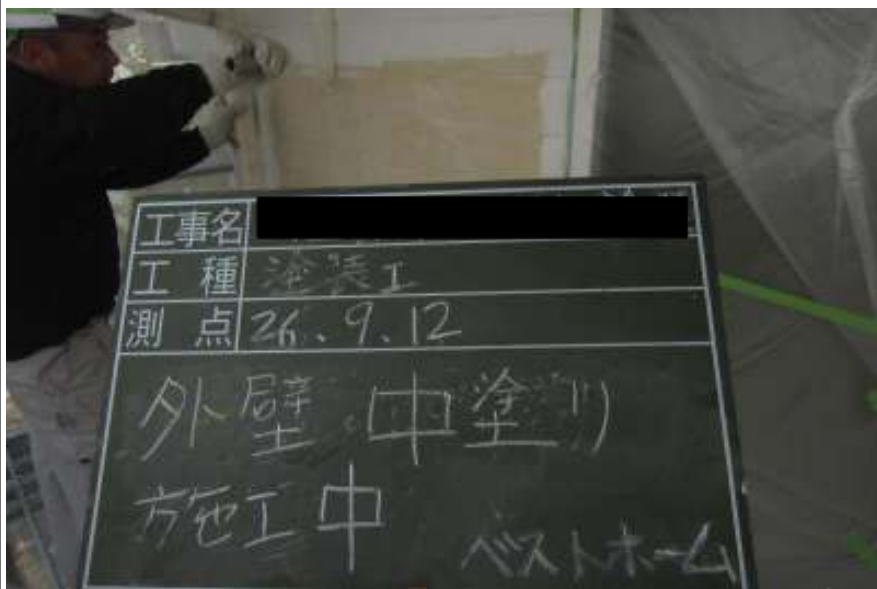 工事名
工種 塗装工
測点 26.9.12
外壁 中塗り
施工中
ベストホーム